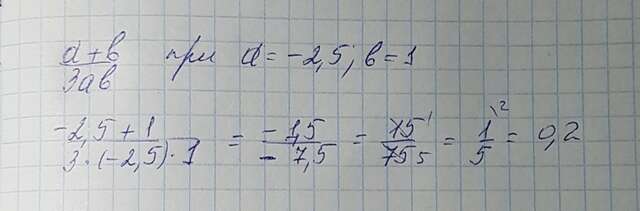 a+b/3ab при a = -2,5; b = 1
(-2,5+1)/(3·(-2,5)·1) = (-1,5)/(-7,5) = 15¹/75₅ = 1\²/5 = 0,2